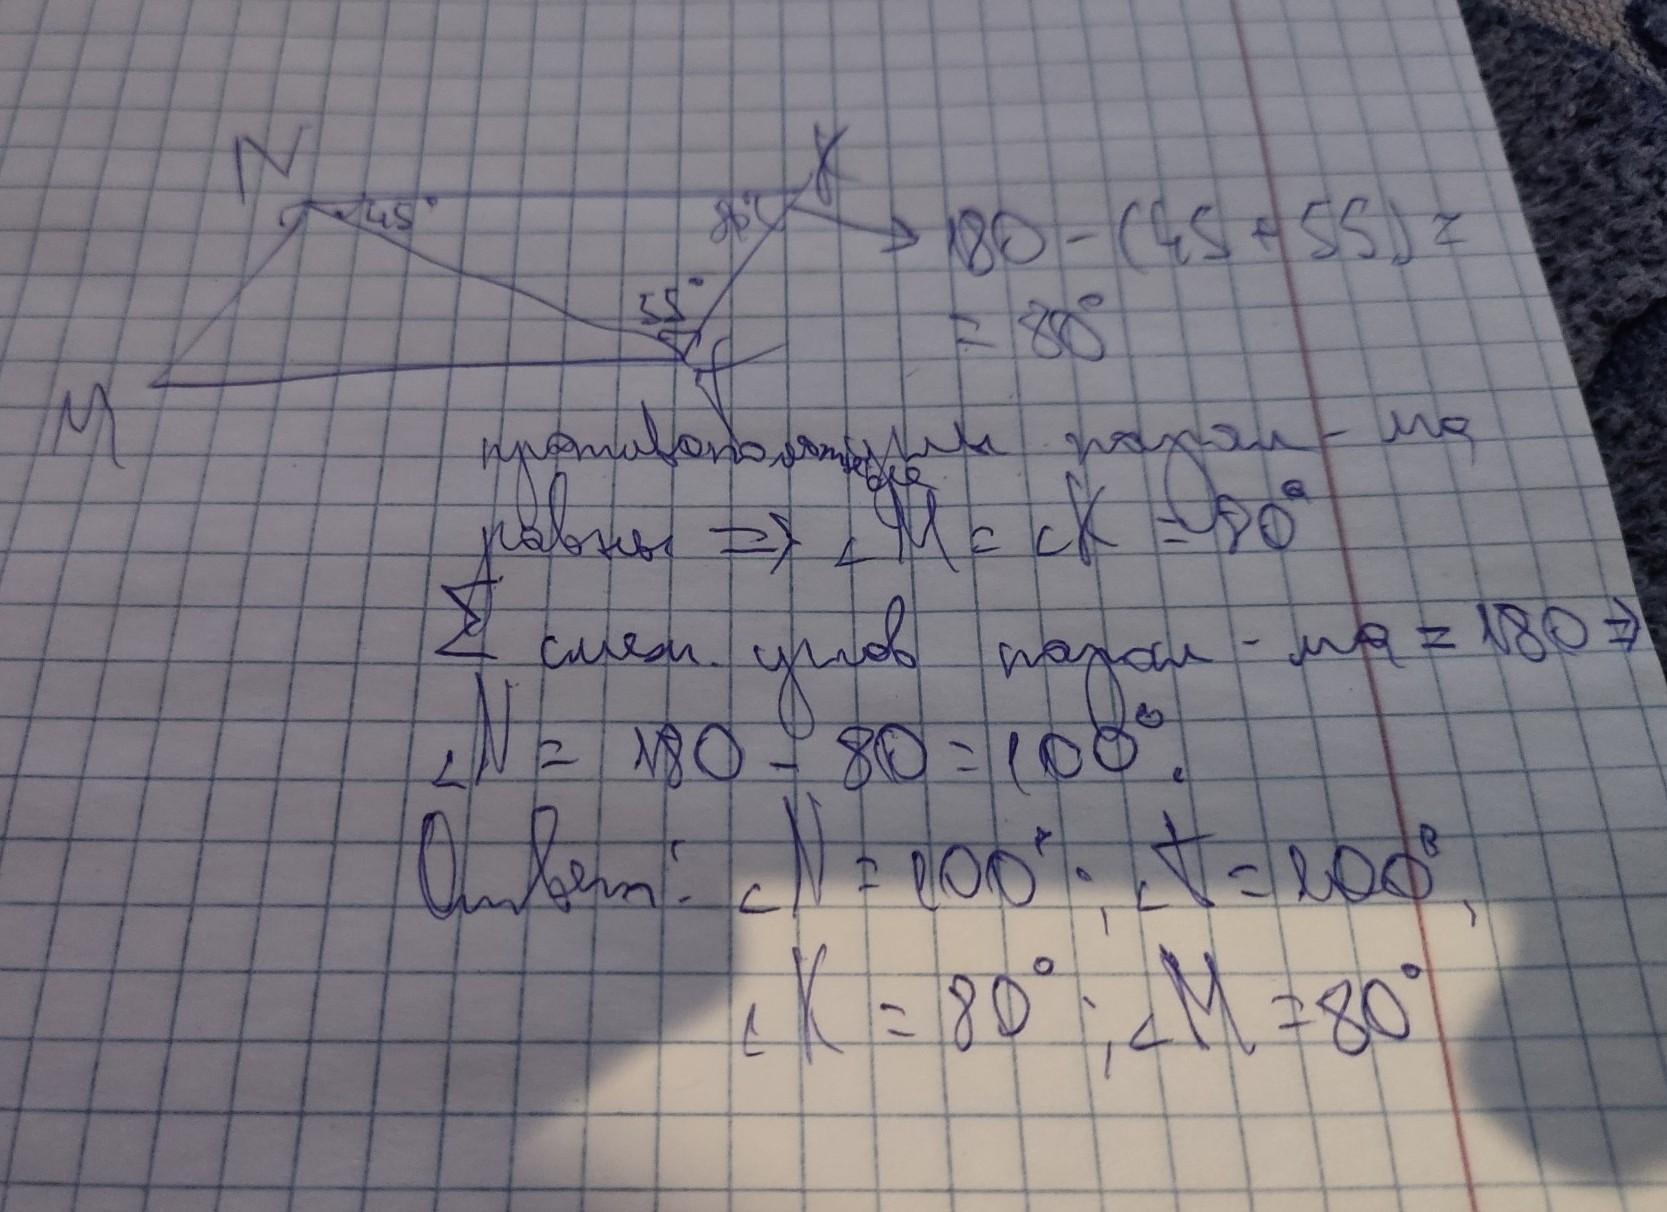 N
K
45°
80°
180 - (45 + 55) =
55°
= 80°
M
противоположные углы парал-ма
равны => ∠M = ∠K = 80°
Σ смеж. углов парал-ма = 180 =>
∠N = 180 - 80 = 100°.
Ответ: ∠N = 100°; ∠T = 100°,
∠K = 80°; ∠M = 80°